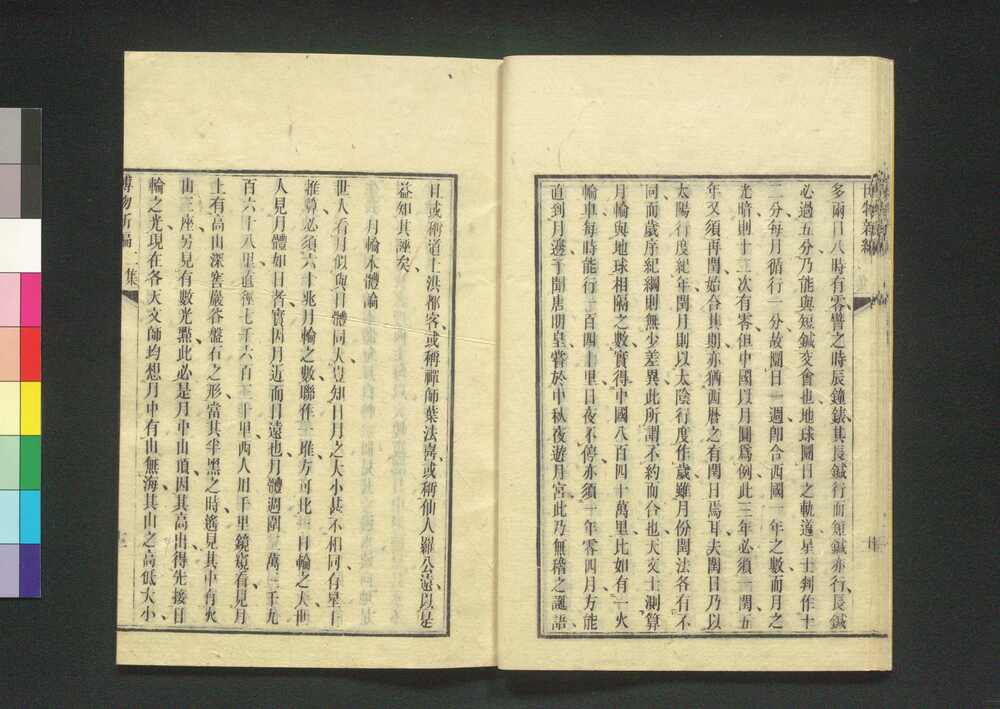 博物新編
多兩日八時有零譬之時辰鐘錶其長鍼行而短鍼亦行長鍼
必過五分乃能與短鍼交會也地球圜日之軌道星士判作十
二分每月循行一分故圜日一週卽合西國一年之數而月之
光暗則十二次有零但中國以月圓爲例此三年必須一閏五
年又須再閏始合其期亦猶西曆之有閏日焉耳夫閏日乃以
太陽行度紀年閏月則以太陰行度作歲雖月份閏法各有不
同而歲序紀綱則無少差異此所謂不約而合也天文士測算
月輪與地球相隔之數實得中國八百四十萬里比如有一火
輪車每時能行一百四十里日夜不停亦須一年零四月方能
直到月邊予聞唐明皇嘗於中秋夜遊月宮此乃無稽之誕語
且或稱道士洪都客或稱禪師葉法善或稱仙人羅公遠以是
益知其誣矣
月輪本體論
世人看月似與日體同大豈知日月之大小甚不相同有星官
推算必須六十兆月輪之數聯作一堆方可比一日輪之大世
人見月體如日者實因月近而日遠也月體週圍二萬三千九
百六十八里直徑七千六百三十里西人用千里鏡窺看見月
上有高山深窖巖谷盤石之形當其半黑之時遙見其中有火
山三座另見有數光點此必是月中山頂因其高出得先接日
輪之光現在各天文師均想月中有山無海其山之高低大小
博物新編二集